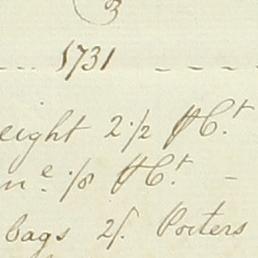 3
1731
eight 2/2 ⅌ Ct
ne /8 ⅌ Ct
bags 2/. Porters